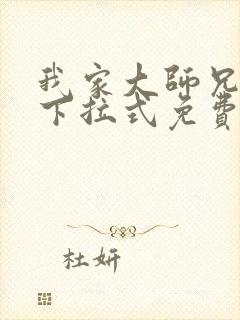 我家大師兄
下拉式免費
杜妍